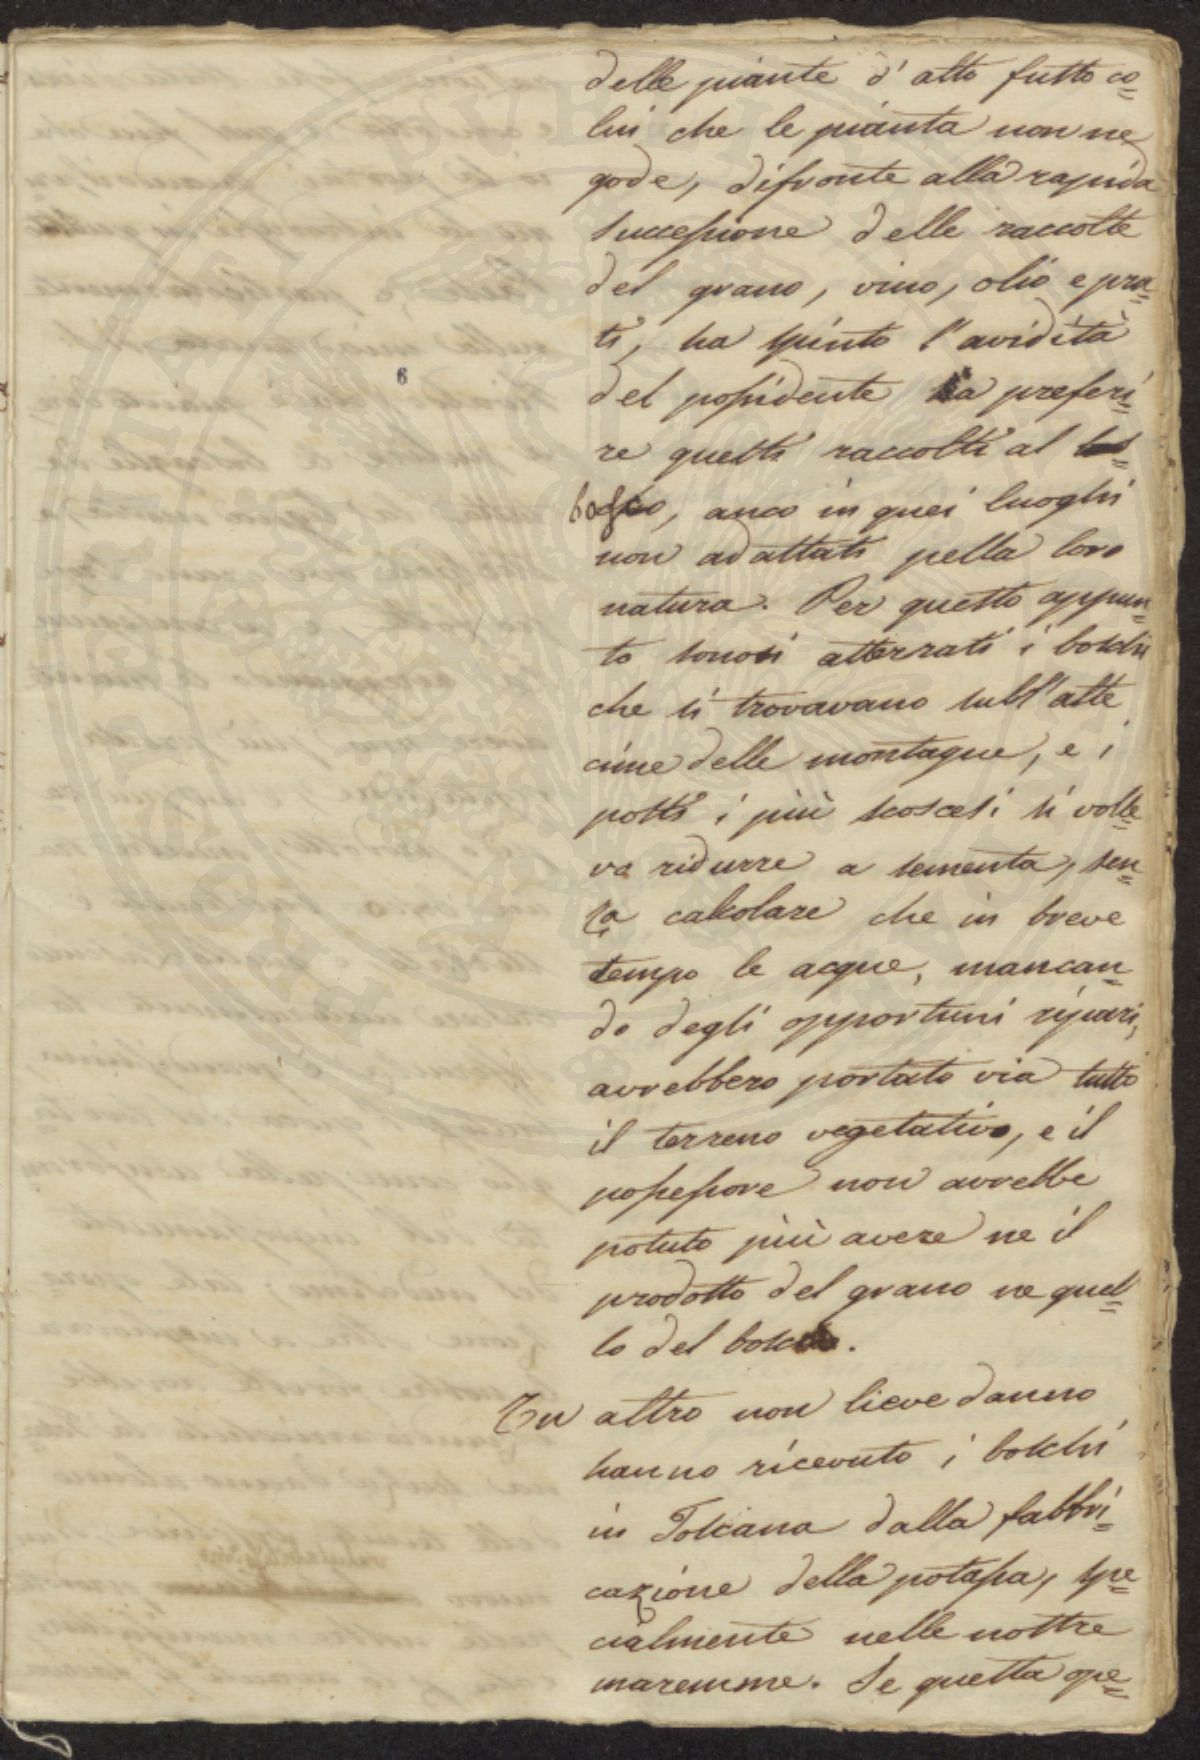 delle piante d' alto fusto co=
lui che le pianta non ne
gode, difronte alla rapida
successione delle raccolte
del grano, vino, olio e pra=
ti, ha spinto l'avidità
del possidente a preferi=
re questi raccolti al
bosco, anco in quei luoghi
non adattati pella loro
natura. Per questo appun=
to sonosi atterrati i boschi
che si trovavano sull'alte
cime delle montagne, e i
posti i più scoscesi si volle=
va ridurre a sementa, sen=
za calcolare che in breve
tempo le acque, mancan=
do degli opportuni ripari,
avrebbero portato via tutto
il terreno vegetativo, e il
possessore non avrebbe
potuto più avere ne il
prodotto del grano ne quel=
lo del bosco.
Un altro non lieve danno
hanno ricevuto i boschi
in Toscana dalla fabbri=
cazione della potassa, spe=
cialmente nelle nostre
maremme. Se questa ope=
6